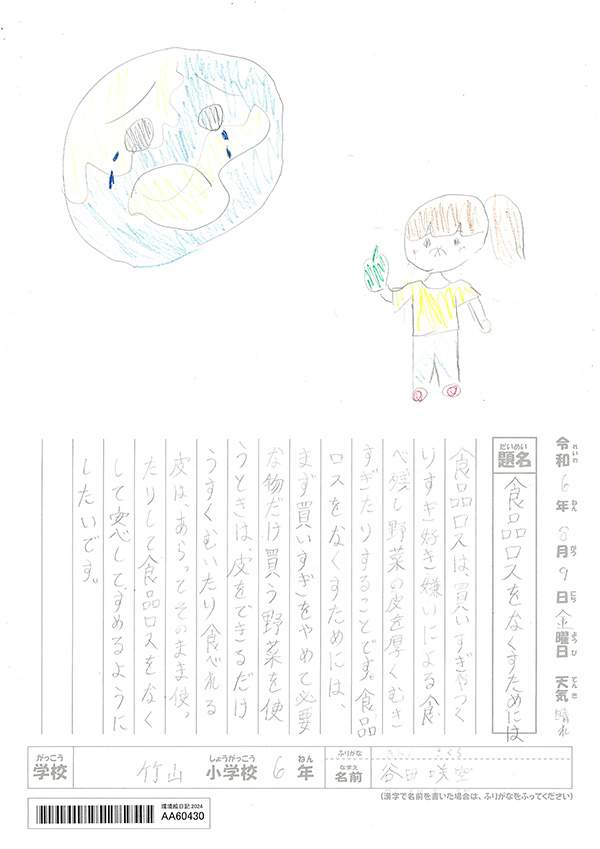 令和6年8月9日金曜日 天気 晴れ
題名 食品ロスをなくすためには
食品ロスは、買いすぎやつく
りすぎ好き嫌いによる食
べ残し野菜の皮を厚くむき
すぎたりすることです。食品
ロスをなくすためには、
まず買いすぎをやめて必要
な物だけ買う野菜を使
うときは、皮をできるだけ
うすくむいたり食べれる
皮は、あらってそのまま使っ
たりして食品ロスをなく
して安心してすめるように
したいです。
学校 竹山 小学校 6年
ふりがな
名前 谷田 咲空
(漢字で名前を書いた場合は、ふりがなをふってください)
環境絵日記 2024
AA60430